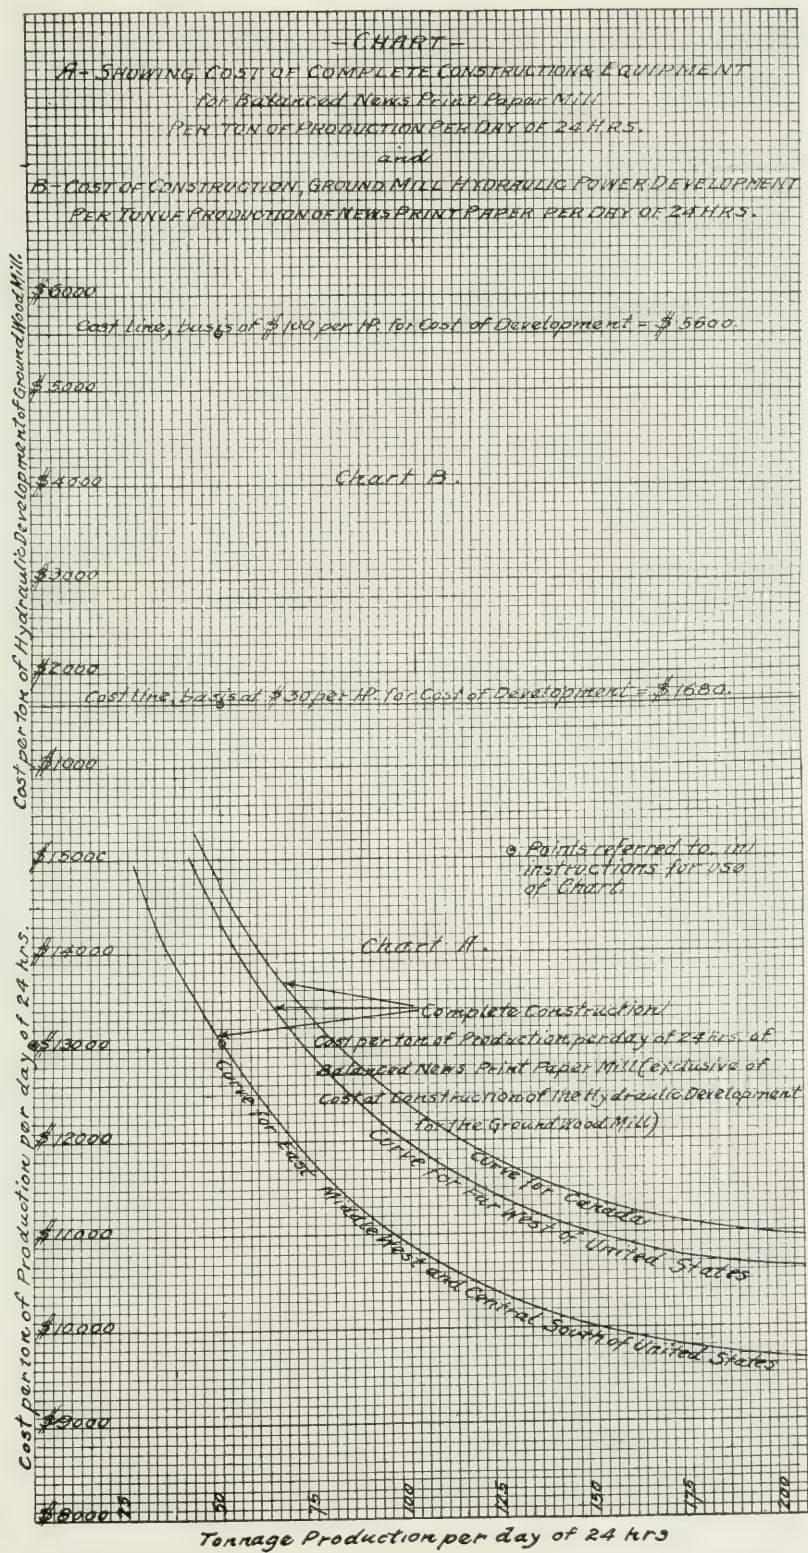 - CHART -
A - SHOWING COST OF COMPLETE CONSTRUCTION & EQUIPMENT
for Balanced News Print Paper Mill
PER TON OF PRODUCTION PER DAY OF 24 HRS.
and
B - COST OF CONSTRUCTION, GROUND MILL HYDRAULIC POWER DEVELOPMENT
PER TON OF PRODUCTION OF NEWS PRINT PAPER PER DAY OF 24 HRS.
Cost per ton of Hydraulic Development of Ground Wood Mill.
$6000
Cost line, basis of $100 per HP. for Cost of Development = $5600.
$5000
$4000
Chart B.
$3000
$2000
Cost line, basis at $30 per HP. for Cost of Development = $1680.
$1000
Cost per ton of Production per day of 24 hrs.
$15000
Points referred to in
instructions for use
of Chart.
$14000
Chart A.
Complete Construction
$13000
Cost per ton of Production, per day of 24 hrs. of
Balanced News Print Paper Mill (exclusive of
Cost at Construction of the Hydraulic Development
for the Ground Wood Mill)
$12000
Curve for Canada
Curve for Far West of United States
Curve for East Middle West and Central South of United States
$11000
$10000
$9000
$8000
25 50 75 100 125 150 175 200
Tonnage Production per day of 24 hrs